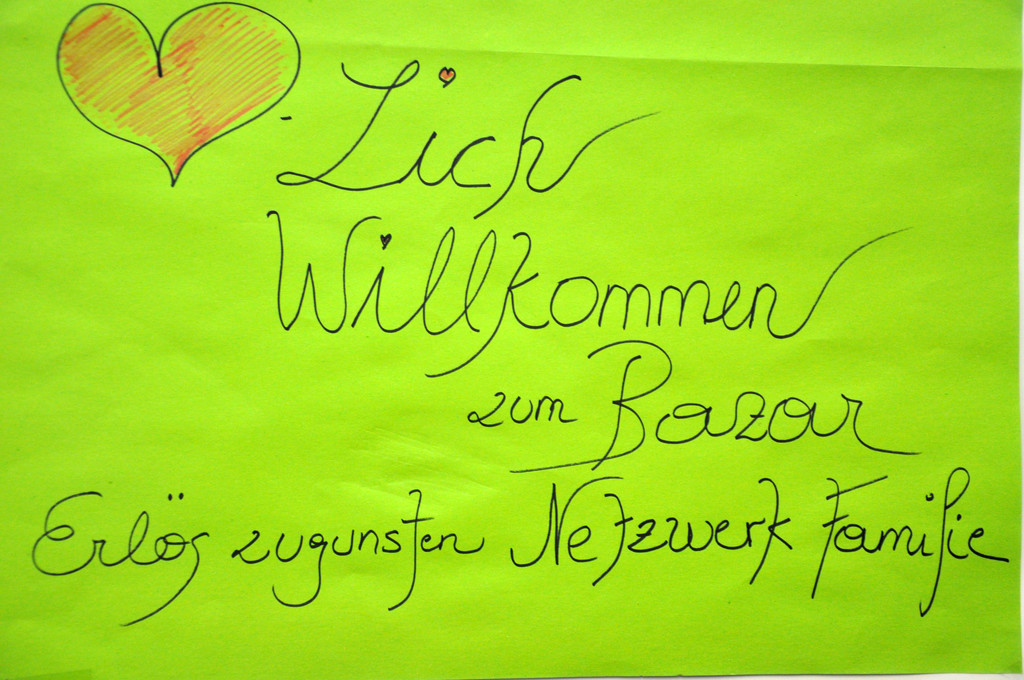 -Lich
Willkommen
zum Bazar
Erlös zugunsten Netzwerk Familie